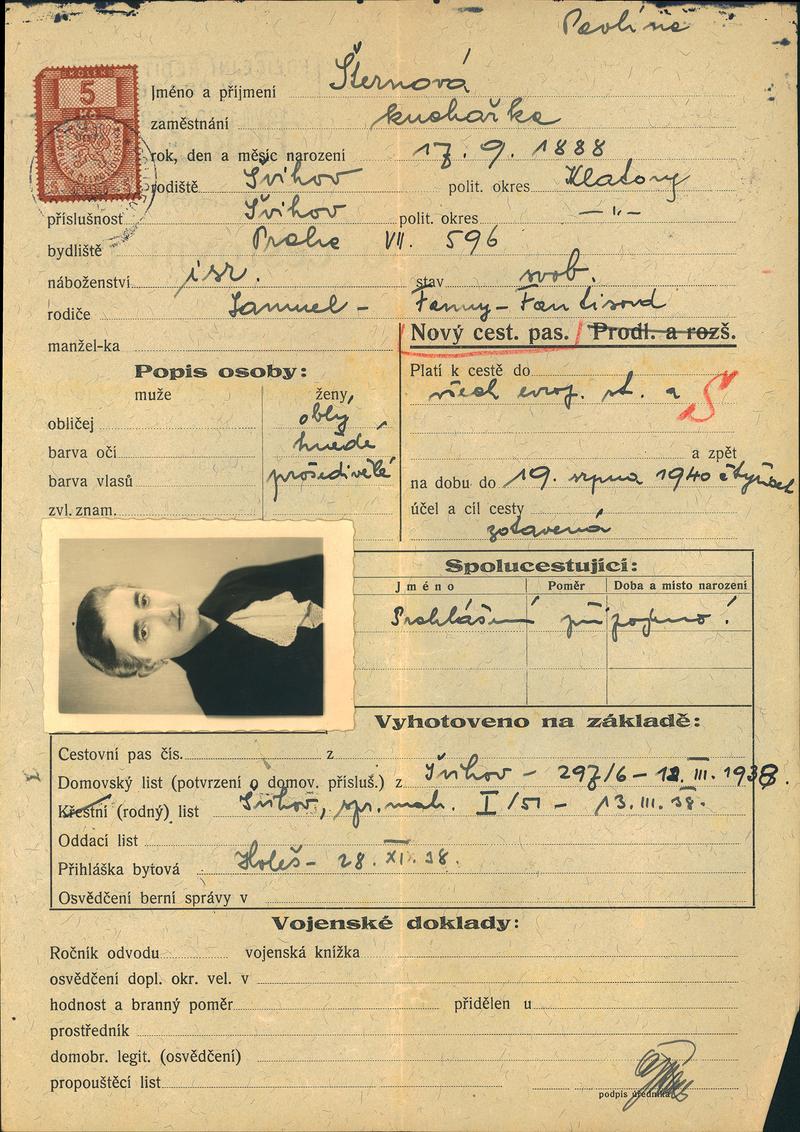 Pavlína
KOLEK
5
Kč
Jméno a příjmení Šternová
zaměstnání kuchařka
rok, den a měsíc narození 17. 9. 1888
rodiště Švihov polit. okres Klatovy
příslušnost Švihov polit. okres —„—
bydliště Praha VII. 596
náboženství isr. stav svob.
rodiče Samuel – Fanny –
manžel-ka
Nový cest. pas. Prodl. a rozš.
Popis osoby:
muže ženy
obličej oblý
barva očí hnědé
barva vlasů prošedivělé
zvl. znam.
Platí k cestě do
všech evrop. st. a S
a zpět
na dobu do 19. srpna 1940
účel a cíl cesty
zotavená
Spolucestující:
Jméno Poměr Doba a místo narození
Prohlášení připojeno!
Vyhotoveno na základě:
Cestovní pas čís. z
Domovský list (potvrzení o domov. přísluš.) z Švihov – 297/6 – 12. III. 1938.
Křestní (rodný) list Švihov, I/51 – 13. III. 38.
Oddací list
Přihláška bytová Holeš – 28. XI. 38.
Osvědčení berní správy v
Vojenské doklady:
Ročník odvodu vojenská knížka
osvědčení dopl. okr. vel. v
hodnost a branný poměr přidělen u
prostředník
domobr. legit. (osvědčení)
propouštěcí list
podpis úředníka